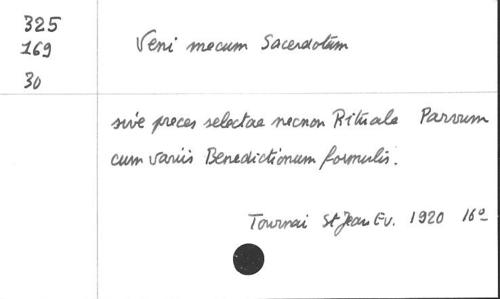 325
169
30
Veni mecum Sacerdotum
sive preces selectae necnon Rituale Parvum
cum variis Benedictionum formulis.
Tournai St Jean Ev. 1920 16º